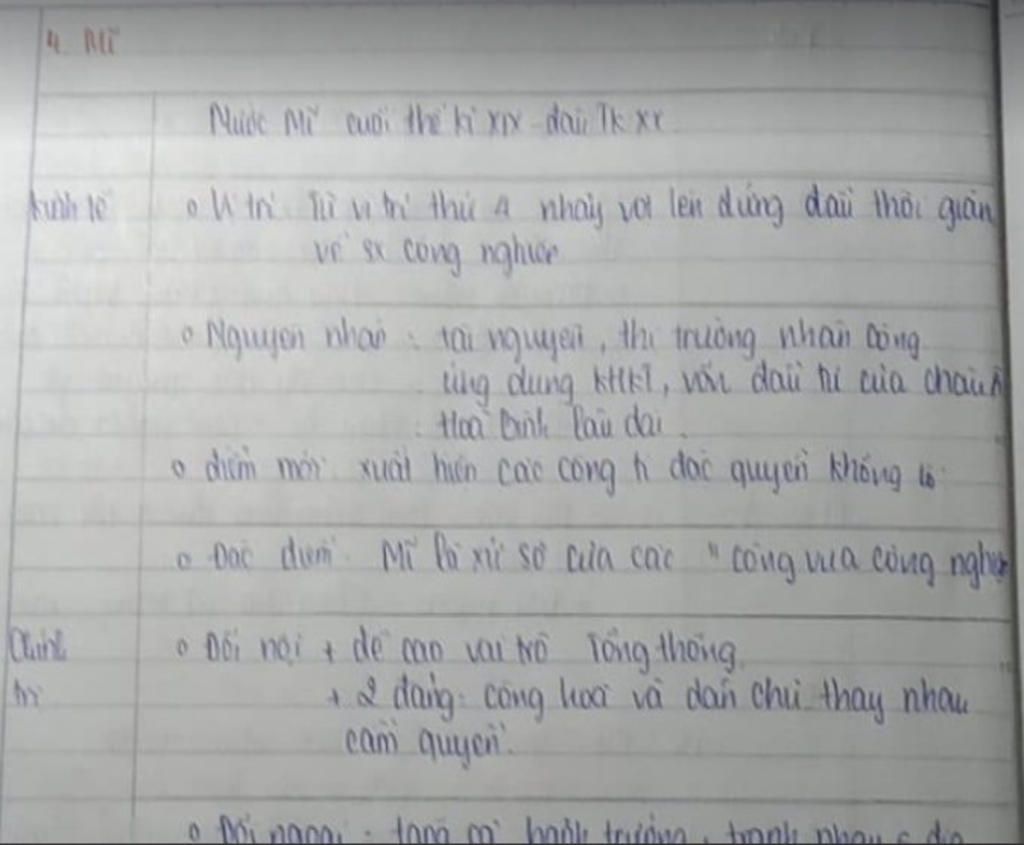 4. Mĩ
Nước Mĩ cuối thế kỉ XIX - đầu TK XX
Kinh tế
o Vị trí: Từ vị trí thứ 4 nhảy vọt lên đứng đầu thế giới
về sx công nghiệp
o Nguyên nhân : tài nguyên, thị trường nhân công
ứng dụng KHKT, vốn đầu tư của châu Â
: Hoà bình lâu dài.
o điểm mới: xuất hiện các công ti độc quyền khổng lồ
o Đặc điểm: Mĩ là xứ sở của các "công vua công nghiệp
Chính trị
o Đối nội + đề cao vai trò Tổng thống
+ 2 đảng: cộng hoà và dân chủ thay nhau
cầm quyền.
o Đối ngoại : tăng cường bành trướng, tranh nhau